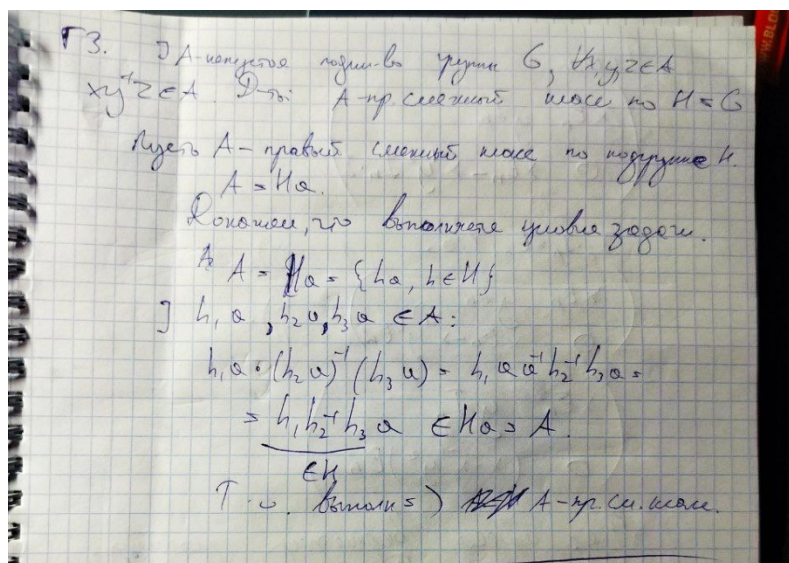 Г3. ] A-непустое подмн-во группы G, ∀x,y,z∈A
xy⁻¹z∈A. Д-ть: A-пр.смежный класс по H≤G
Пусть A - правый смежный класс по подгруппе H.
A = Ha.
Докажем, что выполняется условие задачи.
A = Ha = {ha, h∈H}
] h₁a, h₂a, h₃a ∈A:
h₁a·(h₂a)⁻¹(h₃a) = h₁aa⁻¹h₂⁻¹h₃a=
= h₁h₂⁻¹h₃a ∈Ha=A.
∈H
Т.о. выполн =) A-пр.см.класс.